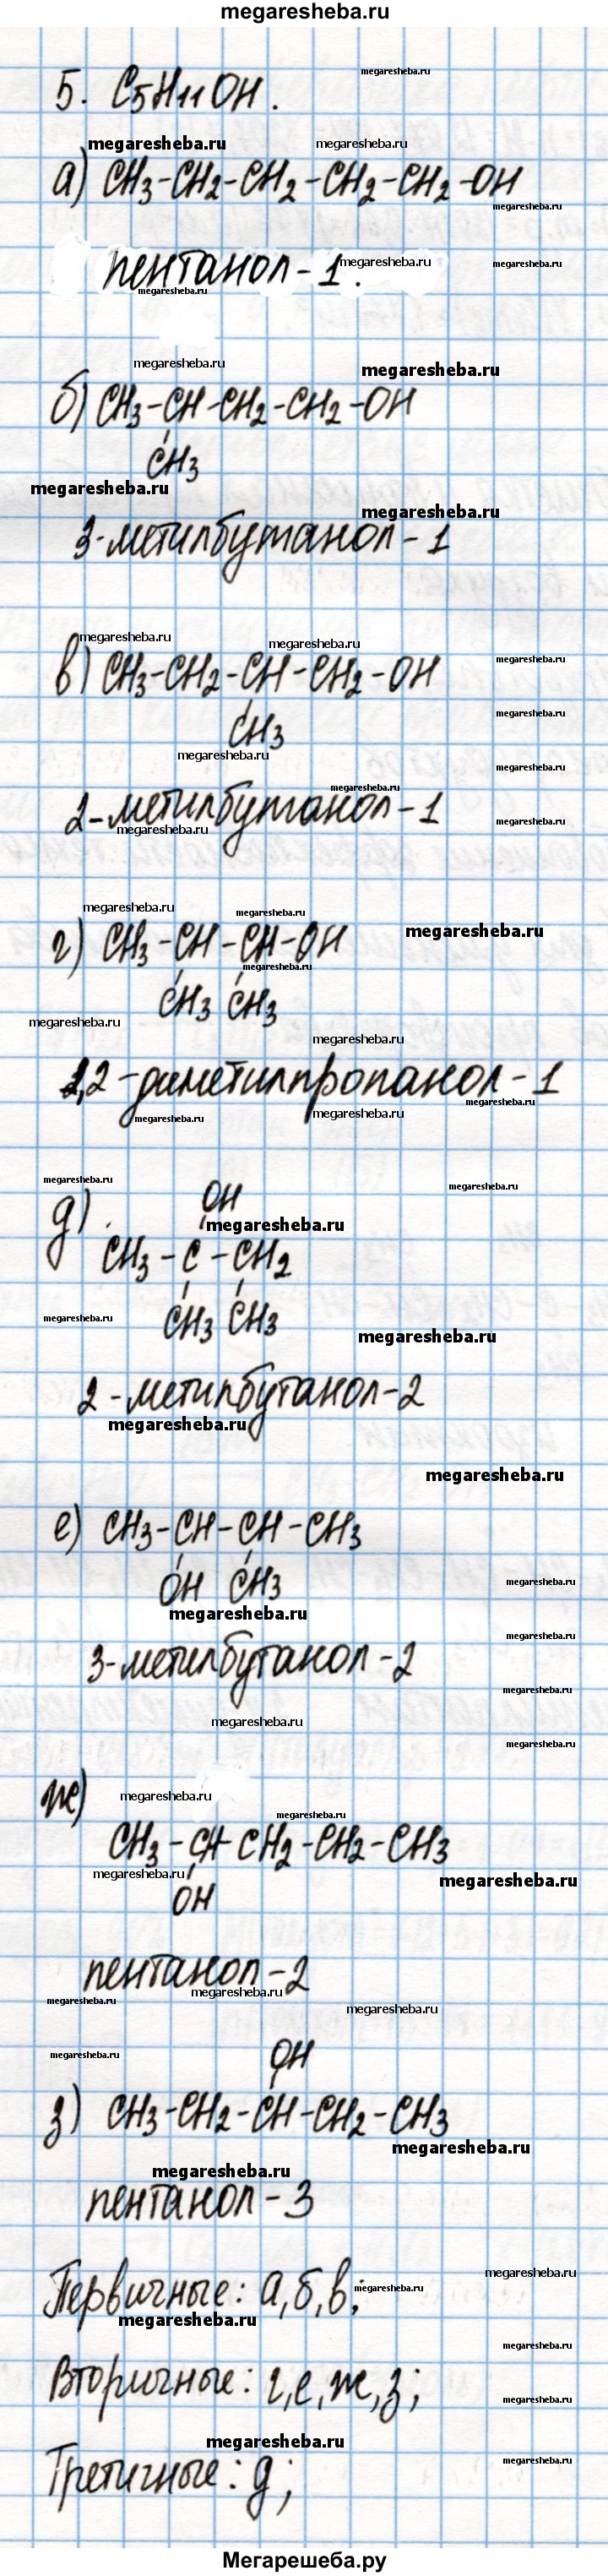 megaresheba.ru
5. C5H11OH.
а) CH3-CH2-CH2-CH2-CH2-OH
пентанол-1.
б) CH3-CH-CH2-CH2-OH
CH3
3-метилбутанол-1
в) CH3-CH2-CH-CH2-OH
CH3
2-метилбутанол-1
г) CH3-CH-CH-OH
CH3 CH3
1,2-диметилпропанол-1
д) OH
CH3-C-CH2
CH3 CH3
2-метилбутанол-2
е) CH3-CH-CH-CH3
OH CH3
3-метилбутанол-2
ж)
CH3-CH-CH2-CH2-CH3
OH
пентанол-2
OH
з) CH3-CH2-CH-CH2-CH3
пентанол-3
Первичные: а, б, в;
Вторичные: г, е, ж, з;
Третичные: д;
Мегарешеба.ру